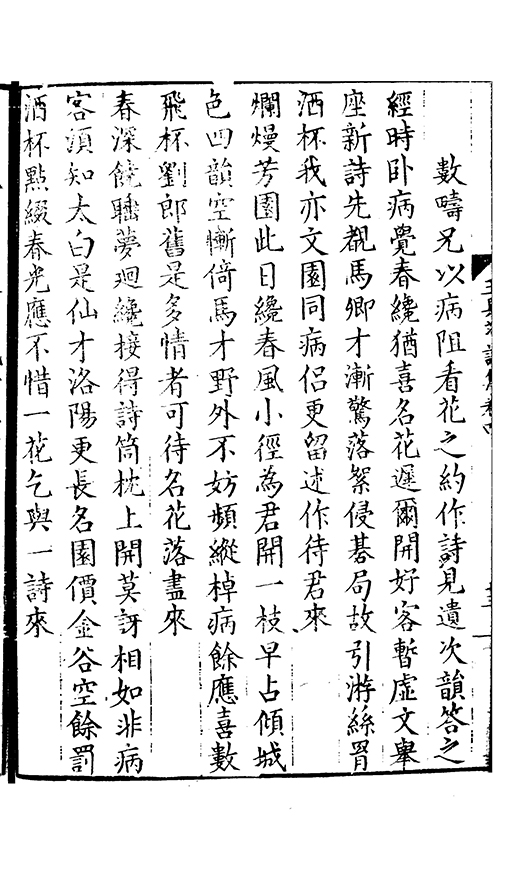 數疇兄以病阻看花之約作詩見遺次韻答之
經時卧病覺春纔猶喜名花遲爾開好客暫虛文舉
座新詩先覩馬卿才漸驚落絮侵碁局故引游絲罥
酒杯我亦文園同病侣更留述作待君來
爛熳芳園此日纔春風小徑為君開一枝早占傾城
色四韻空慚倚馬才野外不妨頻縱棹病餘應喜數
飛杯劉郎舊是多情者可待名花落盡來
春深饒睡夢迴纔接得詩筒枕上開莫訝相如非病
客須知太白是仙才洛陽更長名園價金谷空餘罰
酒杯點綴春光應不惜一花乞與一詩來